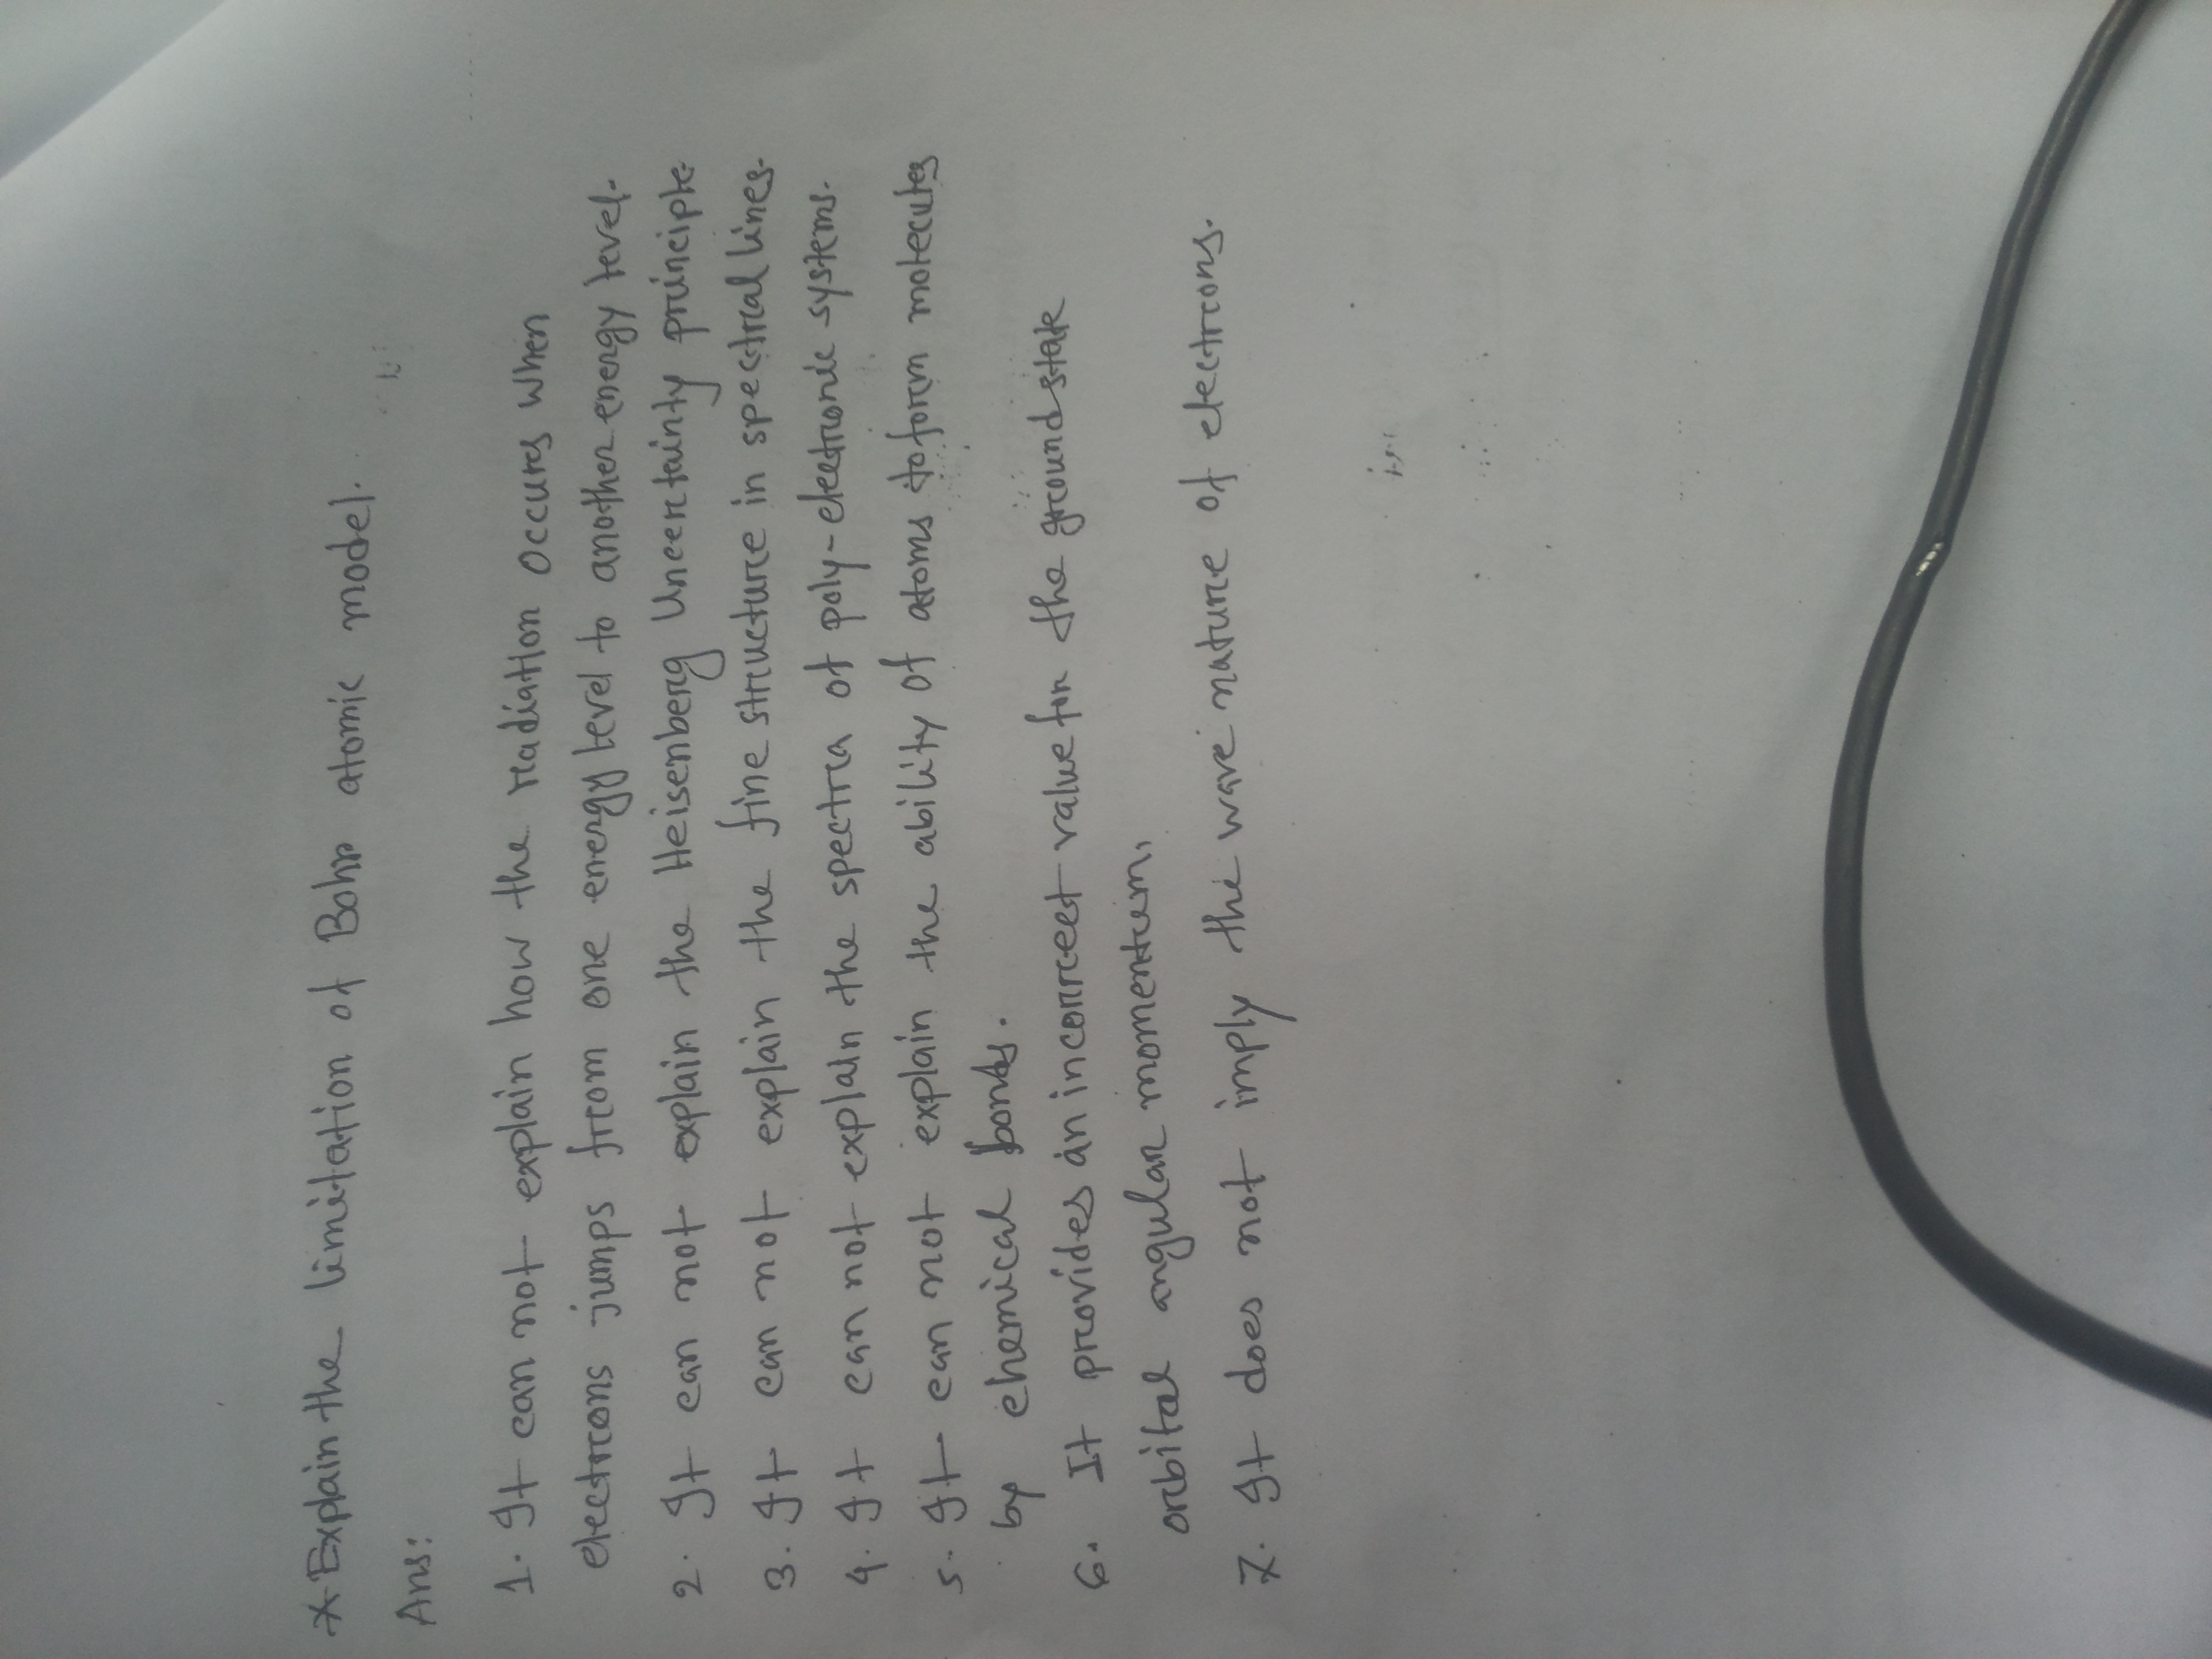 * Explain the limitation of Bohr atomic model.
Ans:
1. It can not explain how the radiation occures when
electrons jumps from one energy level to another energy level.
2. It can not explain the Heisenberg Uncertainty principle
3. It can not explain the fine structure in spectral lines.
4. It can not explain the spectra of poly-electronic systems.
5. It can not explain the ability of atoms to form molecules
by chemical bonds.
6. It provides an incorrect value for the ground state
orbital angular momentum,
7. It does not imply the wave nature of electrons.